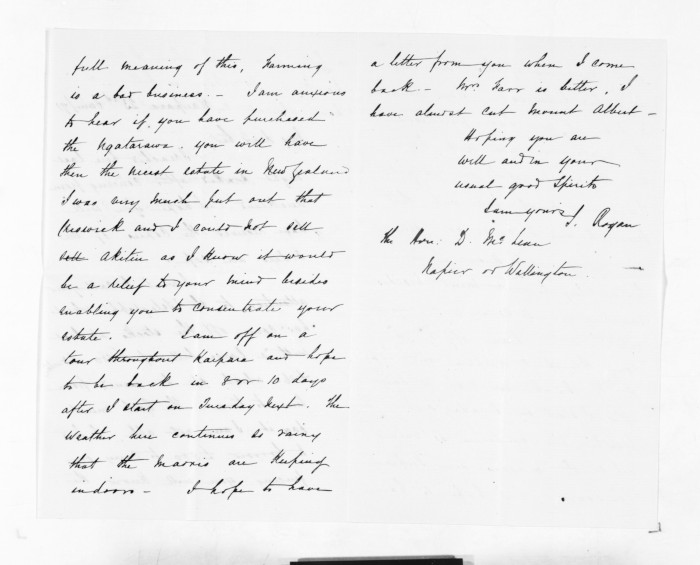 full meaning of this, Farming
is a bad business. - I am anxious
to hear if you have purchased
the Ngatarawa. you will have
then the nicest estate in New Zealand
I was very much put out that
Cheswick and I could not sell
sell Akitio as I know it would
be a relief to your mind besides
enabling you to concentrate your
estate. I am off on a
tour throughout Kaipara and hope
to be back in 8 or 10 days
after I start on Tuesday next. The
weather here continues so rainy
that the Maoris are keeping
indoors - I hope to have
a letter from you when I come
back - Mrs Farr is better, I
have almost cut Mount Albert -
Hoping you are
will and in your
usual good Spirits
I am yours J. Rogan
The Hon: D. McLean
Napier or Wellington.